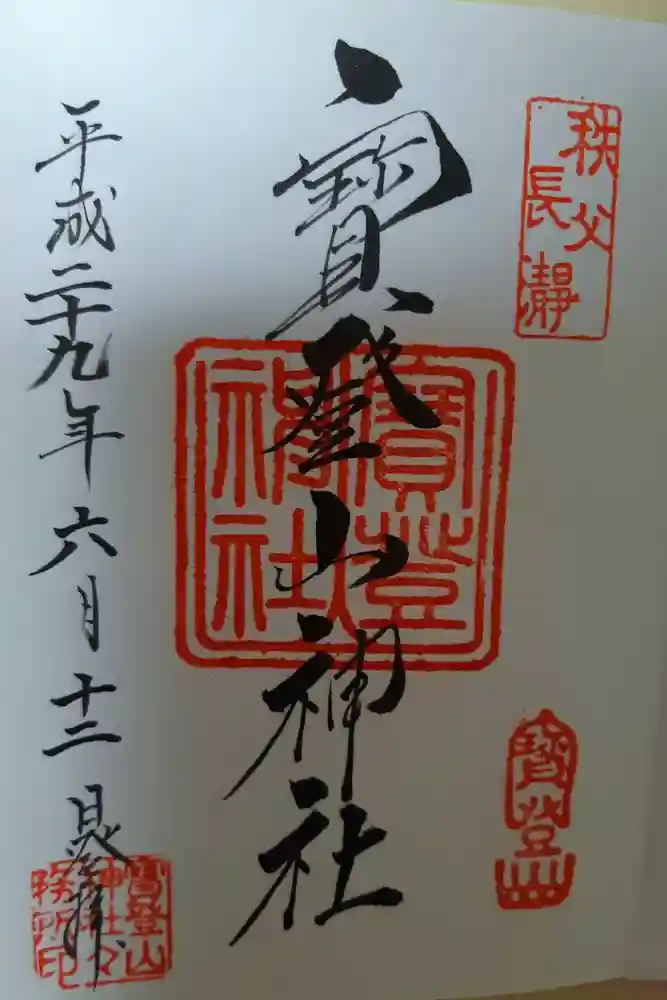 秩父
長瀞
寶登山
寶登山神社
寶登
神社
平成二十九年六月十二日登拝
寶登山
神社々
務所印